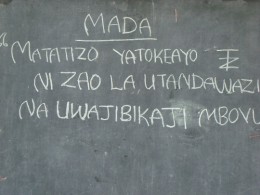 MADA
"MATATIZO YATOKEAYO TZ
NI ZAO LA UTANDAWAZI
NA UWAJIBIKAJI MBOVU